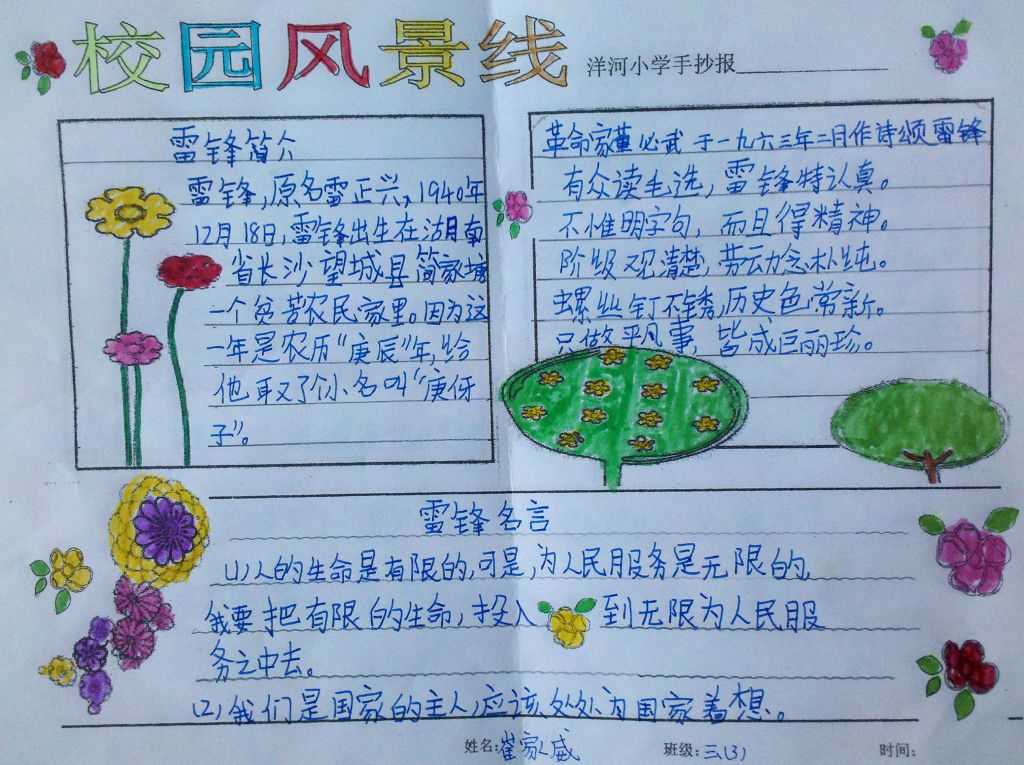 校园风景线
洋河小学手抄报
雷锋简介
雷锋,原名雷正兴,1940年
12月18日,雷锋出生在湖南
省长沙望城县简家塘
一个贫苦农民家里。因为这
一年是农历“庚辰”年,给
他取了个小名叫“庚伢
子”。
革命家董必武于一九六三年二月作诗颂雷锋
有众读毛选,雷锋特认真。
不惟明字句,而且得精神。
阶级观清楚,劳动念朴纯。
螺丝钉不锈,历史色常新。
只做平凡事,皆成巨丽珍。
雷锋名言
(1)人的生命是有限的,可是,为人民服务是无限的,
我要把有限的生命,投入到无限为人民服
务之中去。
(2)我们是国家的主人,应该处处为国家着想。
姓名:崔家威 班级:三(3) 时间: